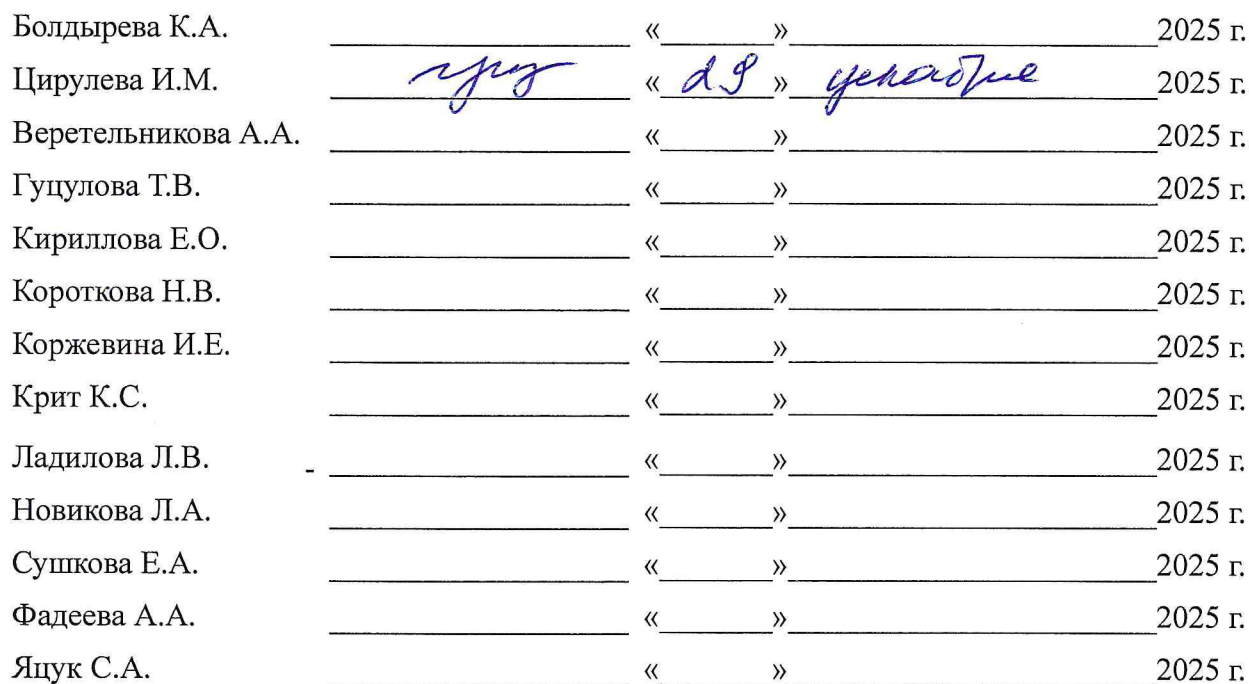 Болдырева К.А. ____________ «____»____________2025 г.
Цирулева И.М. ____________ « 29 » декабря 2025 г.
Веретельникова А.А. ____________ «____»____________2025 г.
Гуцулова Т.В. ____________ «____»____________2025 г.
Кириллова Е.О. ____________ «____»____________2025 г.
Короткова Н.В. ____________ «____»____________2025 г.
Коржевина И.Е. ____________ «____»____________2025 г.
Крит К.С. ____________ «____»____________2025 г.
Ладилова Л.В. - ____________ «____»____________2025 г.
Новикова Л.А. ____________ «____»____________2025 г.
Сушкова Е.А. ____________ «____»____________2025 г.
Фадеева А.А. ____________ «____»____________2025 г.
Яцук С.А. ____________ «____»____________2025 г.